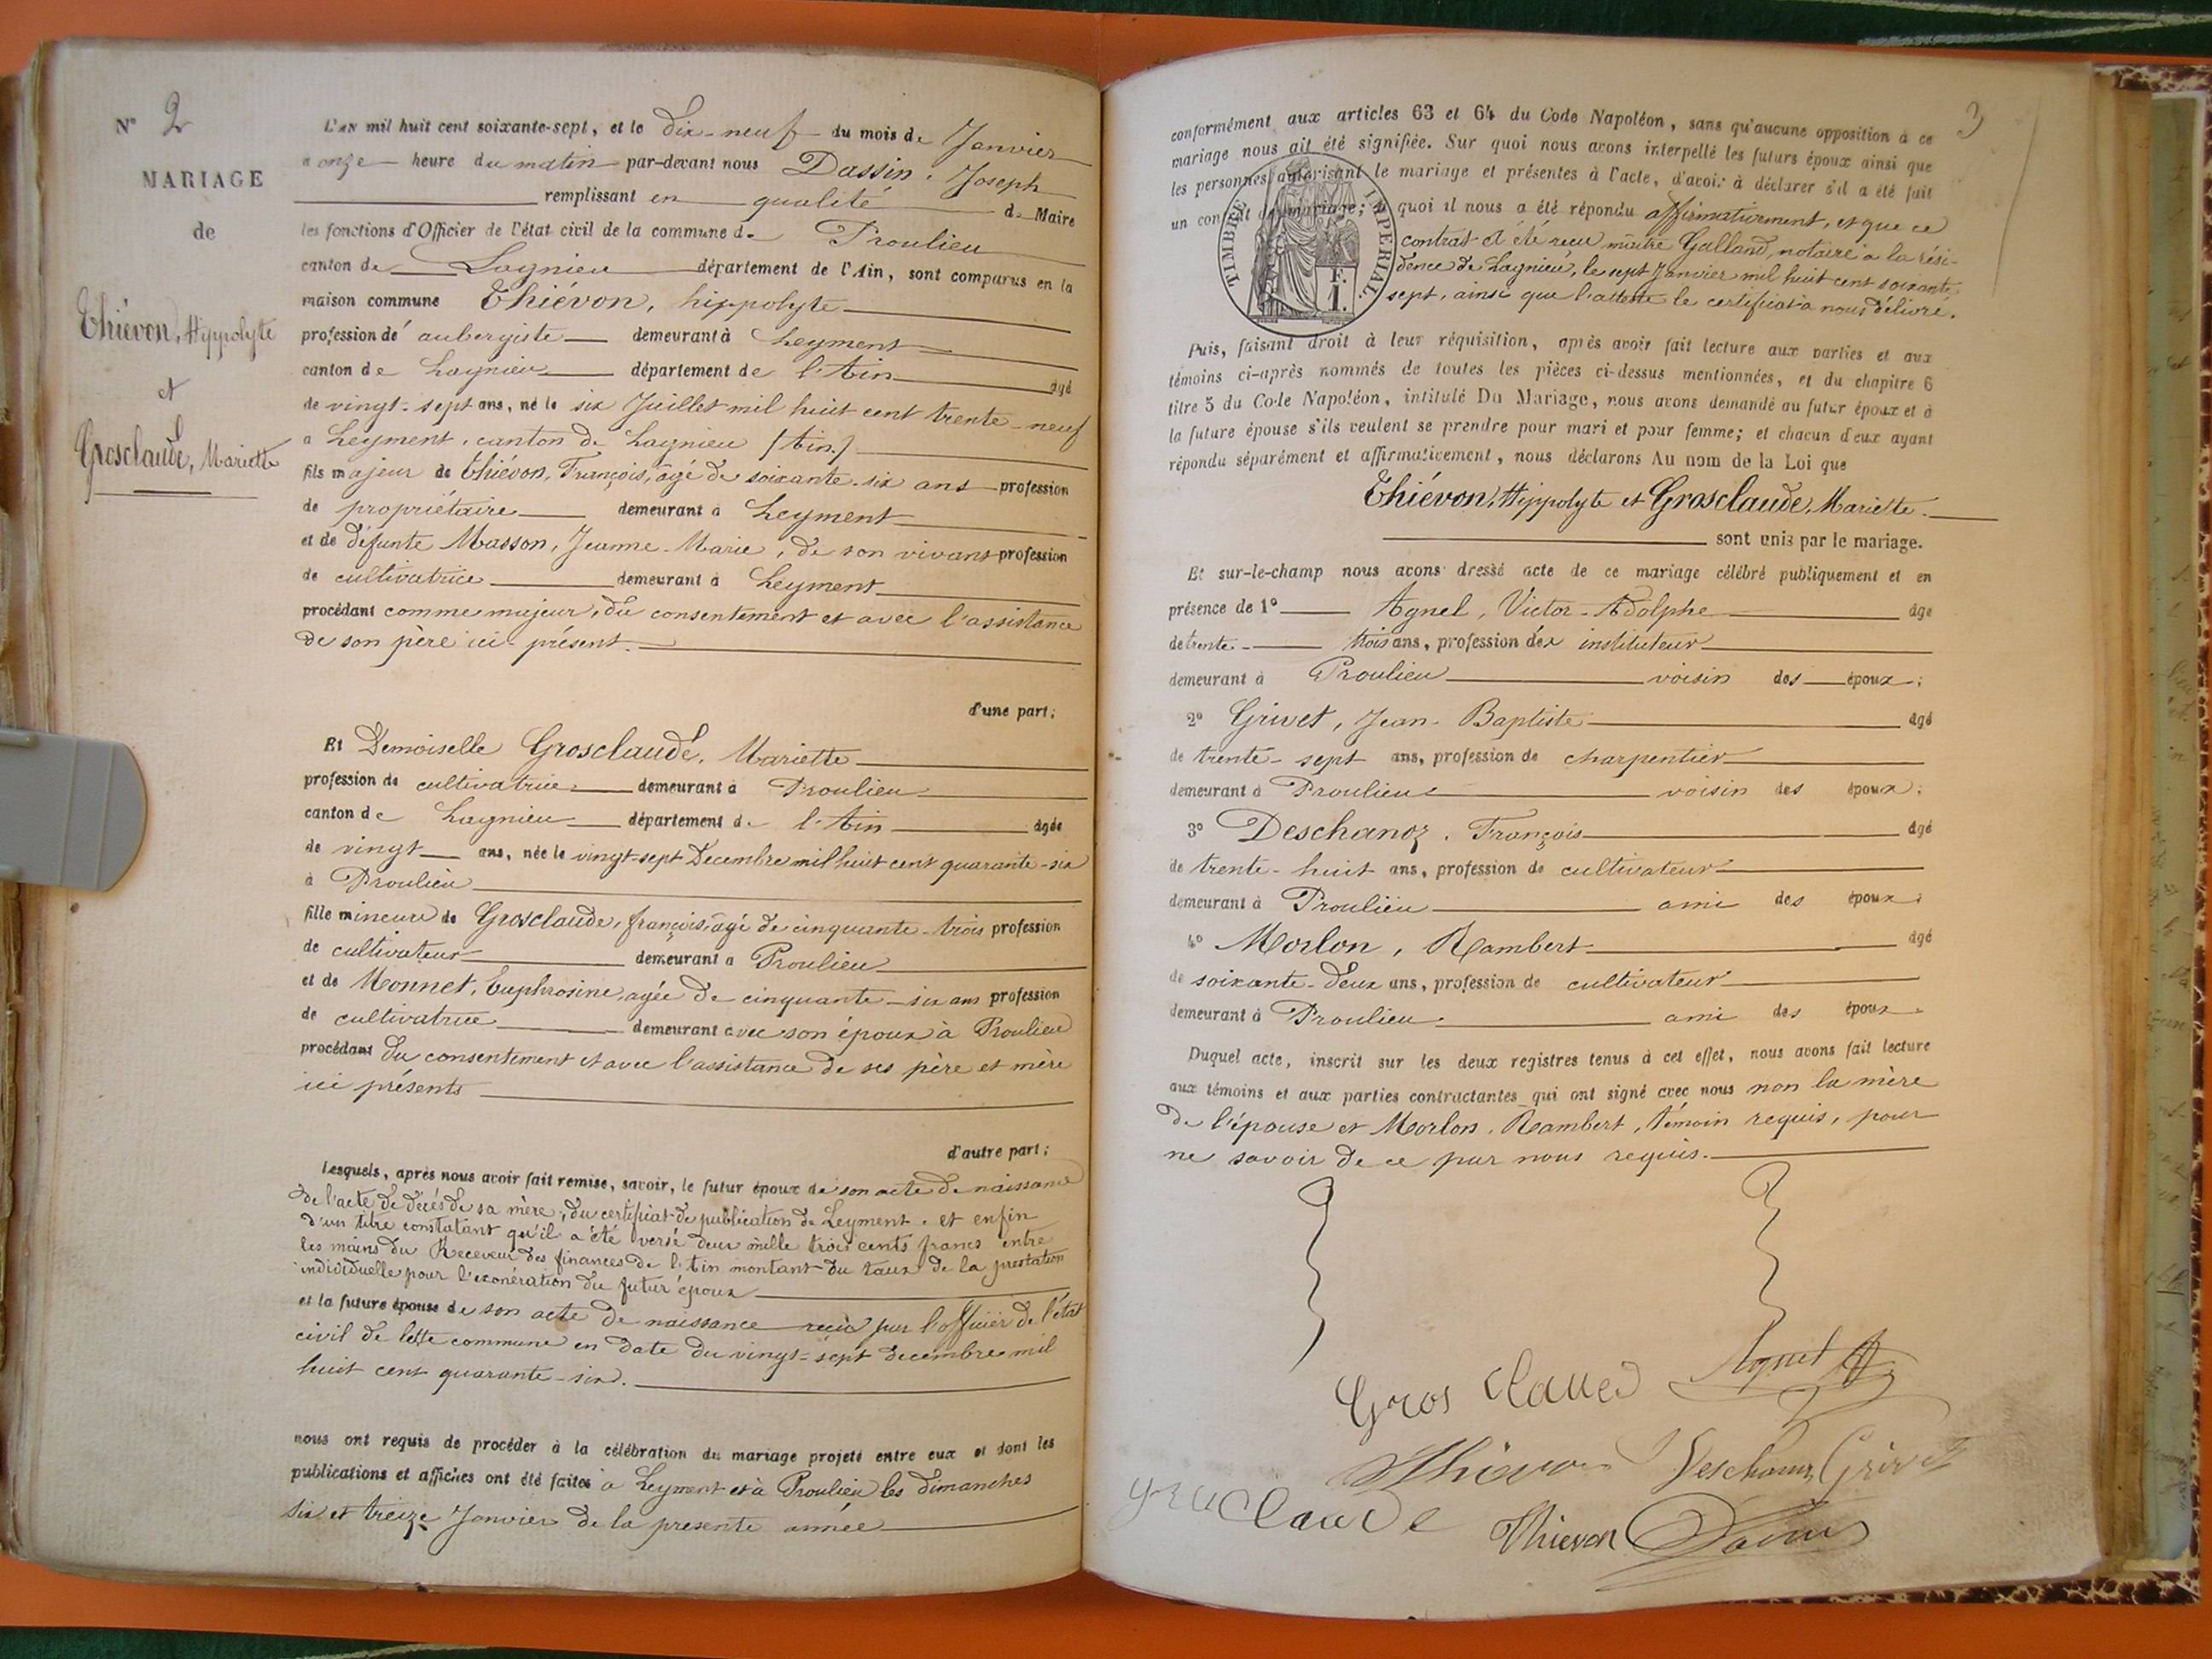 N° 2
MARIAGE
de
Thiévon, Hippolyte
et
Grosclaude, Mariette
L'AN mil huit cent soixante-sept, et le dix-neuf du mois de Janvier
à onze heure du matin par-devant nous Dassin, Joseph
remplissant en qualité de Maire
les fonctions d'Officier de l'état civil de la commune de Proulieu
canton de Lagnieu département de l'Ain, sont comparus en la
maison commune Thiévon, hippolyte
profession dé aubergiste demeurant à Leyment
canton de Lagnieu département de l'Ain âgé
de vingt-sept ans, né le six Juillet mil huit cent trente-neuf
à Leyment, canton de Lagnieu (Ain)
fils majeur de Thiévon, François, âgé de soixante-six ans profession
de propriétaire demeurant à Leyment
et de défunte Masson, Jeanne-Marie, de son vivant profession
de cultivatrice demeurant à Leyment
procédant comme majeur, du consentement et avec l'assistance
de son père ici présent.
d'une part;
Et Demoiselle Grosclaude, Mariette
profession de cultivatrice demeurant à Proulieu
canton de Lagnieu département de l'Ain âgée
de vingt ans, née le vingt-sept Decembre mil huit cent quarante-six
à Proulieu
fille mineure de Grosclaude, françois, âgé de cinquante-trois profession
de cultivateur demeurant à Proulieu
et de Monnet, Euphrosine, agée de cinquante-six ans profession
de cultivatrice demeurant avec son époux à Proulieu
procédant du consentement et avec l'assistance de ses père et mère
ici présents
d'autre part;
Lesquels, après nous avoir fait remise, savoir, le futur époux de son acte de naissance
de l'acte de décès de sa mère, du certificat de publication de Leyment, et enfin
d'un titre constatant qu'il a été versé deux mille trois cents francs entre
les mains du Receveur des finances de l'Ain montant du taux de la prestation
individuelle pour l'exonération du futur époux
et la future épouse de son acte de naissance reçu par l'officier de l'état
civil de cette commune en date du vingt-sept decembre mil
huit cent quarante-six.
nous ont requis de procéder à la célébration du mariage projeté entre eux et dont les
publications et affiches ont été faites à Leyment et à Proulieu les dimanches
six et treize Janvier de la presente année
3
conformément aux articles 63 et 64 du Code Napoléon, sans qu'aucune opposition à ce
mariage nous ait été signifiée. Sur quoi nous avons interpellé les futurs époux ainsi que
les personnes autorisant le mariage et présentes à l'acte, d'avoir à déclarer s'il a été fait
un contrat de mariage; à quoi il nous a été répondu affirmativement, et que ce
contrat a été reçu maître Galland, notaire à la rési-
dence de Lagnieu, le sept Janvier mil huit cent soixante-
sept, ainsi que l'atteste le certificat à nous délivré.
TIMBRE IMPERIAL.
F.
1.
Puis, faisant droit à leur réquisition, après avoir fait lecture aux parties et aux
témoins ci-après nommés de toutes les pièces ci-dessus mentionnées, et du chapitre 6
titre 5 du Code Napoléon, intitulé Du Mariage, nous avons demandé au futur époux et à
la future épouse s'ils veulent se prendre pour mari et pour femme; et chacun d'eux ayant
répondu séparément et affirmativement, nous déclarons Au nom de la Loi que
Thiévon, Hippolyte et Grosclaude, Mariette.
sont unis par le mariage.
Et sur-le-champ nous avons dressé acte de ce mariage célébré publiquement et en
présence de 1° Agnel, Victor-Adolphe âgé
de trente-trois ans, profession d' instituteur
demeurant à Proulieu voisin des époux;
2° Grivet, Jean-Baptiste âgé
de trente-sept ans, profession de charpentier
demeurant à Proulieu voisin des époux;
3° Deschanoz, François âgé
de trente-huit ans, profession de cultivateur
demeurant à Proulieu ami des époux;
4° Morlon, Rambert âgé
de soixante-deux ans, profession de cultivateur
demeurant à Proulieu ami des époux.
Duquel acte, inscrit sur les deux registres tenus à cet effet, nous avons fait lecture
aux témoins et aux parties contractantes qui ont signé avec nous non la mère
de l'épouse et Morlon, Rambert, témoin requis, pour
ne savoir de ce par nous requis.
Gros Claude Agnel
Thiévon Deschanoz Grivet
gros Claude Thievon Dassin